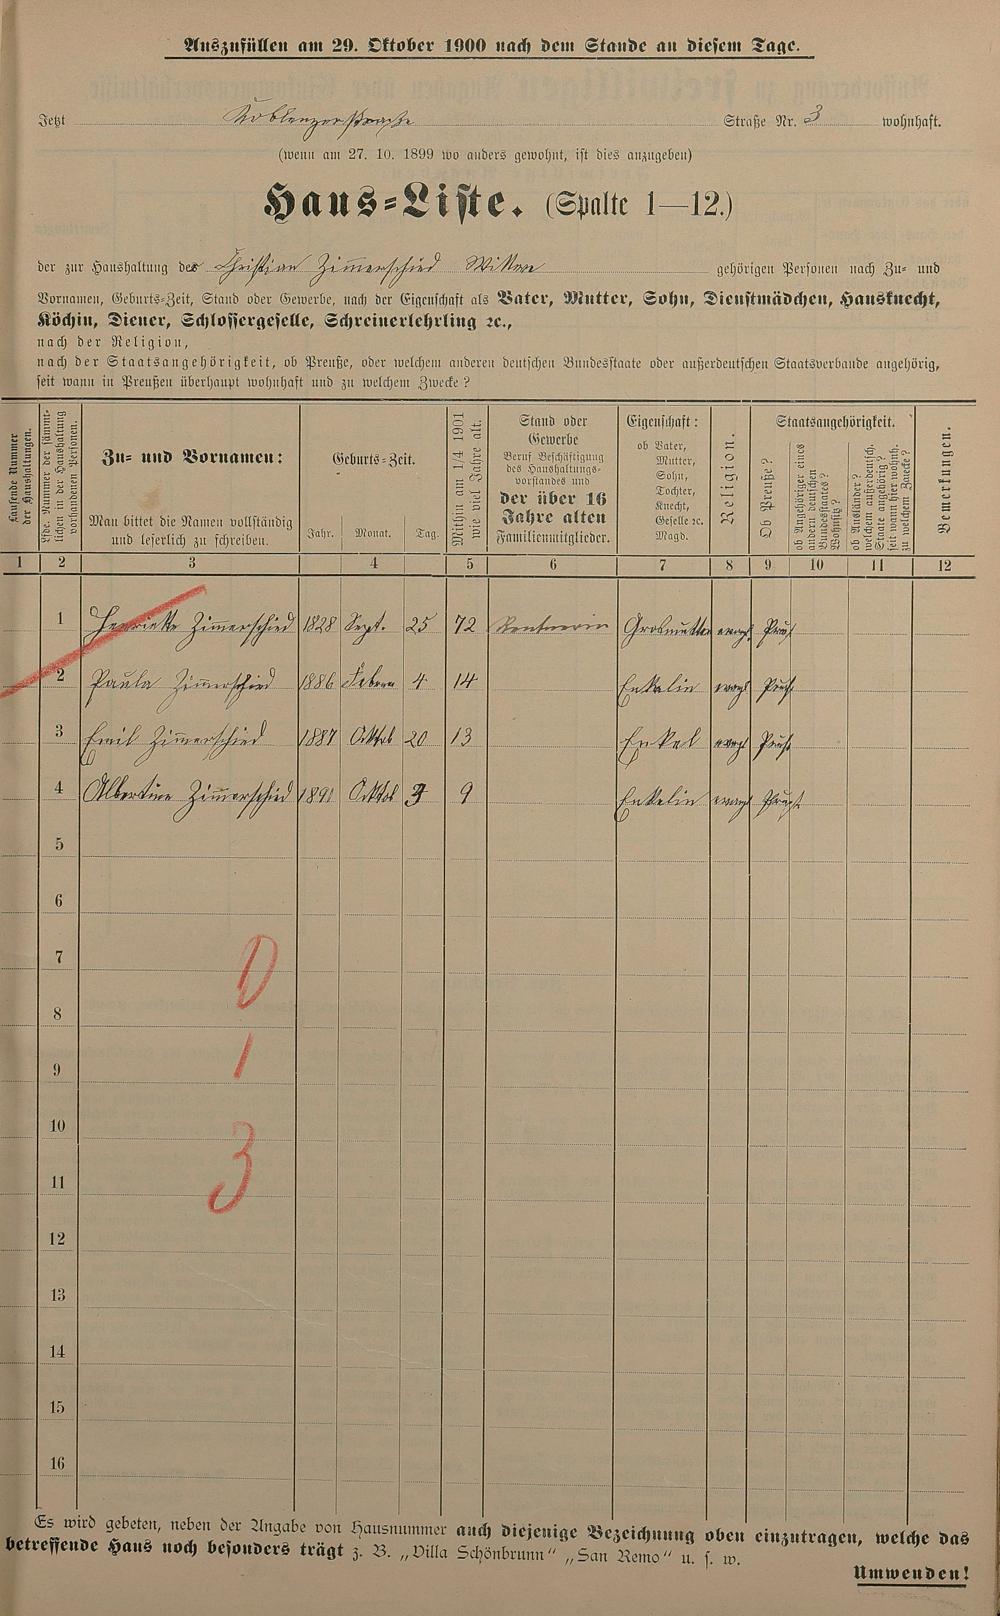 Auszufüllen am 29. Oktober 1900 nach dem Stande an diesem Tage.
Jetzt Koblenzerstraße Straße Nr. 3 wohnhaft.
(wenn am 27. 10. 1899 wo anders gewohnt, ist dies anzugeben)
Haus-Liste. (Spalte 1—12.)
der zur Haushaltung des Christian Zimerschied Wittwe gehörigen Personen nach Zu- und
Vornamen, Geburts-Zeit, Stand oder Gewerbe, nach der Eigenschaft als Vater, Mutter, Sohn, Dienstmädchen, Hausknecht,
Köchin, Diener, Schlossergeselle, Schreinerlehrling ꝛc.,
nach der Religion,
nach der Staatsangehörigkeit, ob Preuße, oder welchem anderen deutschen Bundesstaate oder außerdeutschen Staatsverbande angehörig,
seit wann in Preußen überhaupt wohnhaft und zu welchem Zwecke?
Laufende Nummer der Haushaltungen.
Lfde. Nummer der sämmtlichen in der Haushaltung vorhandenen Personen.
Zu- und Vornamen:
Man bittet die Namen vollständig
und leserlich zu schreiben.
Geburts-Zeit.
Jahr. Monat. Tag.
Mithin am 1/4 1901
wie viel Jahre alt.
Stand oder
Gewerbe
Beruf Beschäftigung
des Haushaltungs-
vorstandes und
der über 16
Jahre alten
Familienmitglieder.
Eigenschaft:
ob Vater,
Mutter,
Sohn,
Tochter,
Knecht,
Geselle ꝛc.
Magd.
Religion.
Staatsangehörigkeit.
Ob Preuße?
ob Angehöriger eines
andern deutschen
Bundesstaates?
Wohnsitz?
ob Ausländer?
welchem außerdeutsch.
Staate angehörig?
seit wann hier wohnh.
zu welchem Zwecke?
Bemerkungen.
1 2 3 4 5 6 7 8 9 10 11 12
1 Henriette Zimerschied 1828 Sept. 25 72 Rentnerin Grosmutter evngl. Prß
2 Paula Zimerschied 1886 Febru 4 14 Enkelin evngl Prß.
3 Emil Zimerschied 1887 Oktob 20 13 Enkel evngl Prß.
4 Albertine Zimerschied 1891 Oktob 3 9 Enkelin evngl Prß.
5
6
7
0
8
9
1
10
3
11
12
13
14
15
16
Es wird gebeten, neben der Angabe von Hausnummer auch diejenige Bezeichnung oben einzutragen, welche das
betreffende Haus noch besonders trägt z. B. „Villa Schönbrunn“ „San Remo“ u. s. w.
Umwenden!